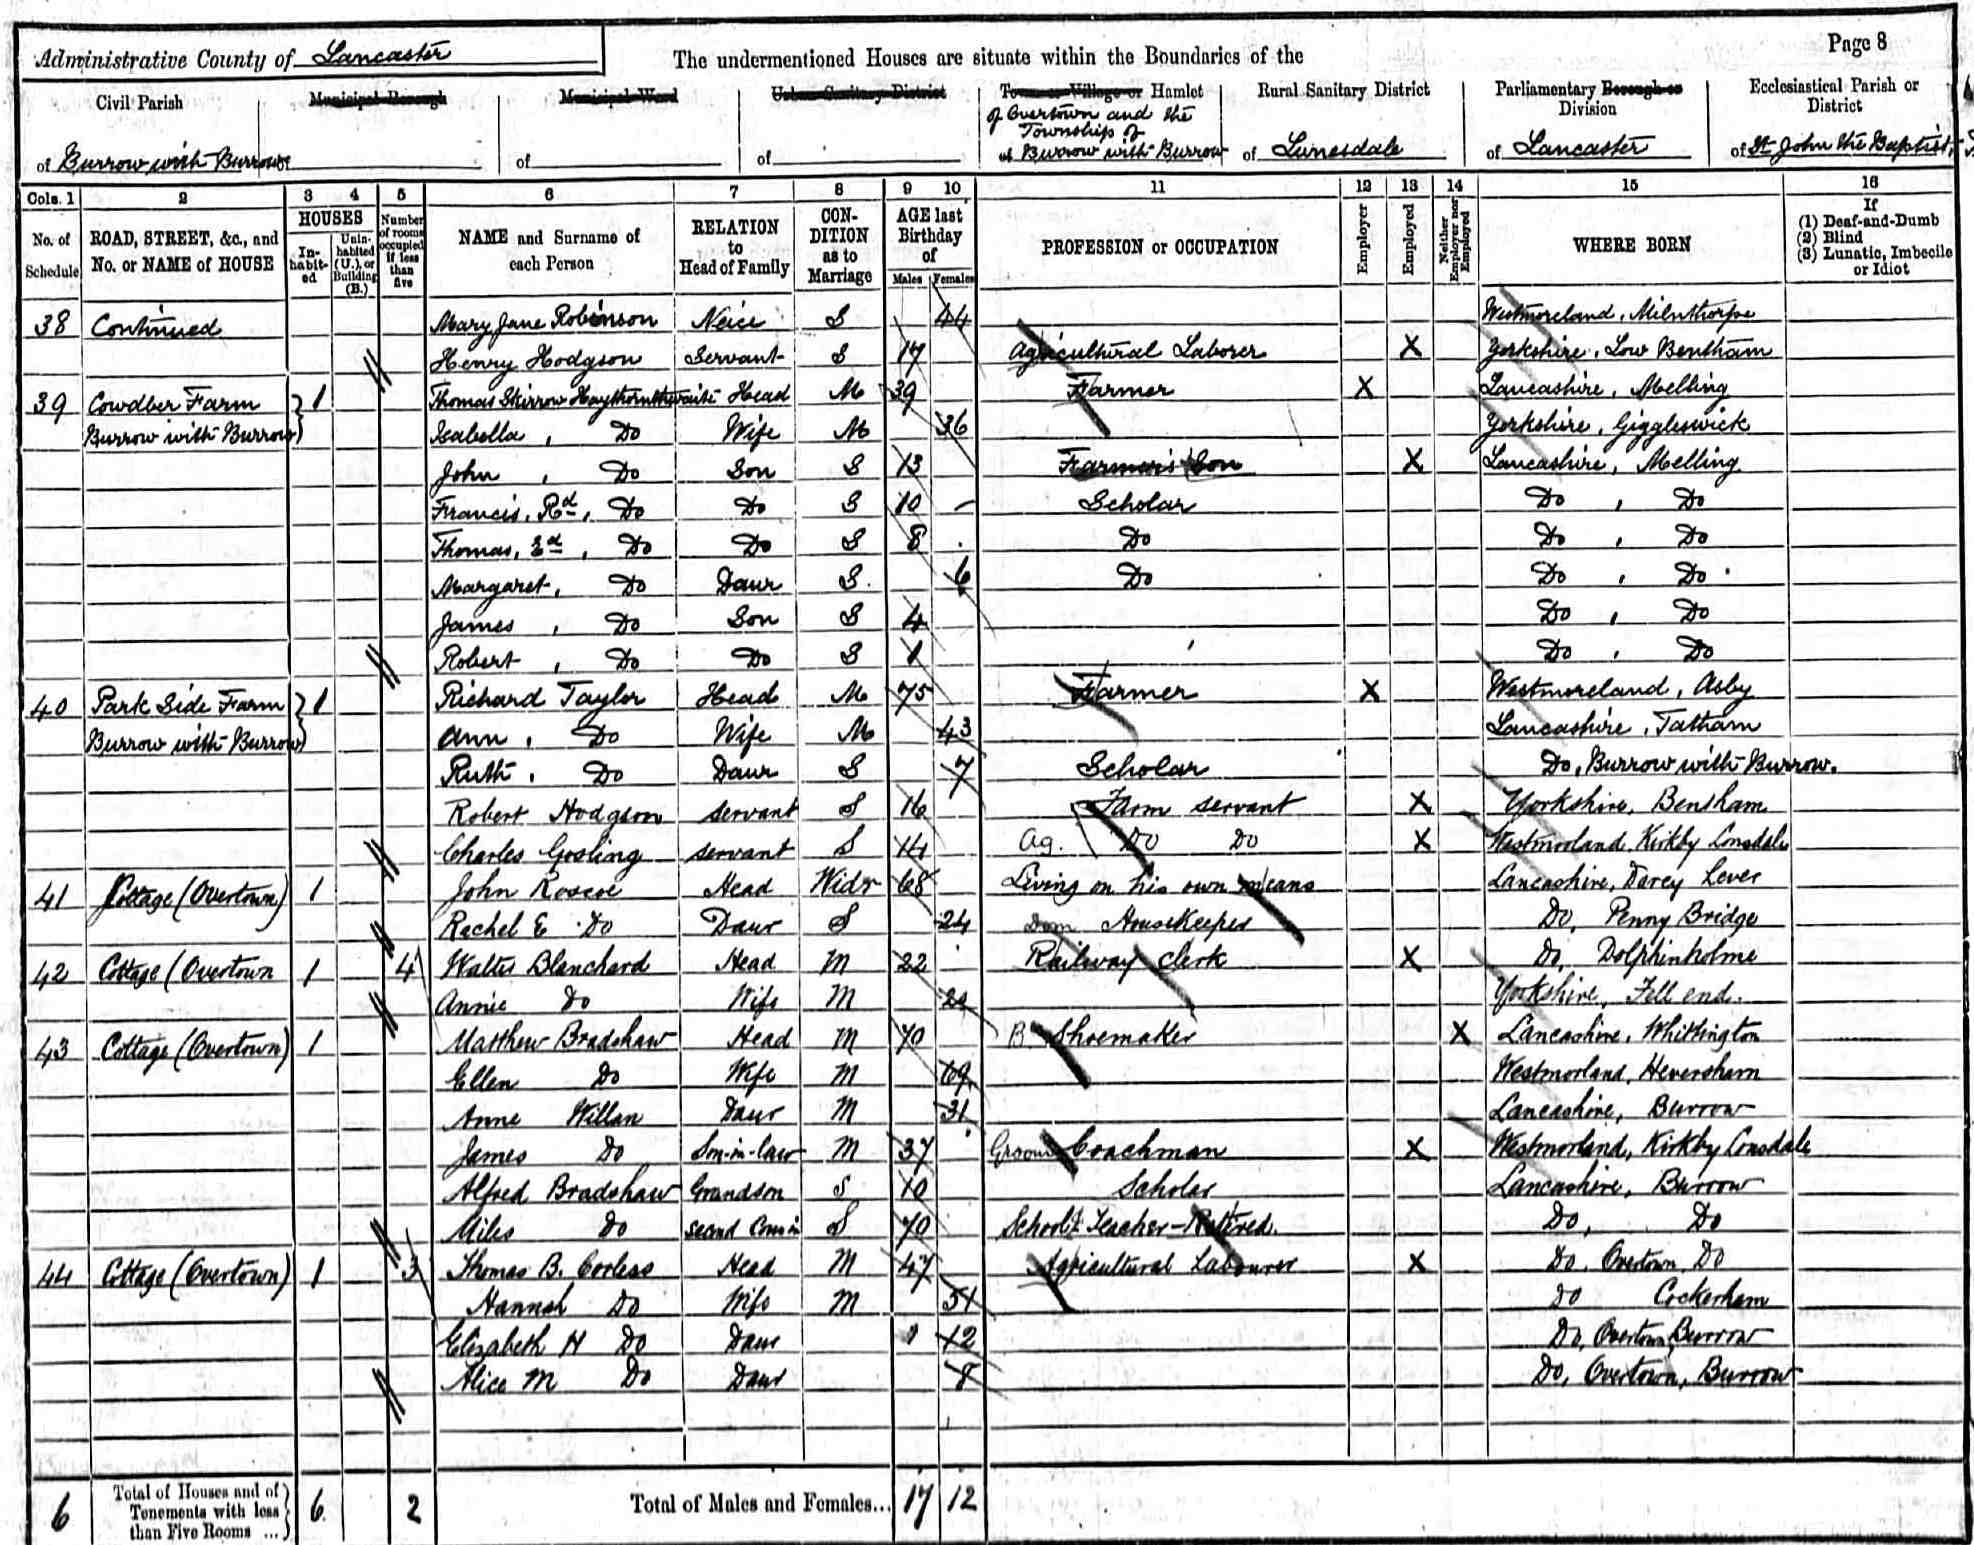 Page 8
Administrative County of Lancaster
The undermentioned Houses are situate within the Boundaries of the
Civil Parish | Municipal Borough | Municipal Ward | Urban Sanitary District | Town or Village or Hamlet | Rural Sanitary District | Parliamentary Borough or Division | Ecclesiastical Parish or District
of Burrow with Burrow | of | of | of Overtown and the Township of Burrow with Burrow | of Lunesdale | of Lancaster | of St. John the Baptist,
Cols. 1 | 2 | 3 | 4 | 5 | 6 | 7 | 8 | 9 | 10 | 11 | 12 | 13 | 14 | 15 | 16
No. of Schedule | ROAD, STREET, &c., and No. or NAME of HOUSE | HOUSES In-habit-ed | Unin-habited (U.), or Building (B.) | Number of rooms occupied if less than five | NAME and Surname of each Person | RELATION to Head of Family | CON-DITION as to Marriage | AGE last Birthday of Males | Females | PROFESSION or OCCUPATION | Employer | Employed | Neither Employer nor Employed | WHERE BORN | If (1) Deaf-and-Dumb (2) Blind (3) Lunatic, Imbecile or Idiot
38 Continued Mary Jane Robinson Neice S 44 Westmoreland, Milnthorpe
Henry Hodgson Servant S 17 Agricultural Laborer X Yorkshire, Low Bentham
39 Cowdber Farm 1 Thomas Skirrow Haythornthwaite Head M 39 Farmer X Lancashire, Melling
Burrow with Burrow Isabella, Do Wife M 36 Yorkshire, Giggleswick
John, Do Son S 13 Farmer's Son X Lancashire, Melling
Francis, Rd, Do Do S 10 Scholar Do, Do
Thomas, Ed, Do Do S 8 Do Do, Do
Margaret, Do Daur S 6 Do Do, Do
James, Do Son S 4 Do, Do
Robert, Do Do S 1 Do, Do
40 Park Side Farm 1 Richard Taylor Head M 75 Farmer X Westmoreland, Asby
Burrow with Burrow Ann, Do Wife M 43 Lancashire, Tatham
Ruth, Do Daur S 7 Scholar Do, Burrow with Burrow.
Robert Hodgson servant S 16 Farm servant X Yorkshire, Bensham
Charles Gosling servant S 14 Ag. Do Do X Westmorland, Kirkby Lonsdale
41 Cottage (Overtown) 1 John Roscoe Head Widr 68 Living on his own means Lancashire, Darcy Lever
Rachel E Do Daur S 24 Dom Housekeeper Do, Penny Bridge
42 Cottage (Overtown 1 4 Walter Blanchard Head M 22 Railway Clerk X Do, Dolphinholme
Annie Do Wife M Yorkshire, Fell end.
43 Cottage (Overtown) 1 Matthew Bradshaw Head M 70 Shoemaker X Lancashire, Whittington
Ellen Do Wife M 69 Westmorland, Heversham
Anne Willan Daur M 31 Lancashire, Burrow
James Do Son-in-law M 37 Groom Coachman X Westmorland, Kirkby Lonsdale
Alfred Bradshaw Grandson S 10 Scholar Lancashire, Burrow
Miles Do second Cousin S 70 School Teacher - Retired. Do, Do
44 Cottage (Overtown) 1 3 Thomas B. Corless Head M 47 Agricultural Labourer X Do, Overtown, Do
Hannah Do Wife M 51 Do Cockerham
Elizabeth H Do Daur 12 Do, Overtown, Burrow
Alice M Do Daur 8 Do, Overtown, Burrow
6 Total of Houses and of Tenements with less than Five Rooms ... 6 2 Total of Males and Females... 17 12